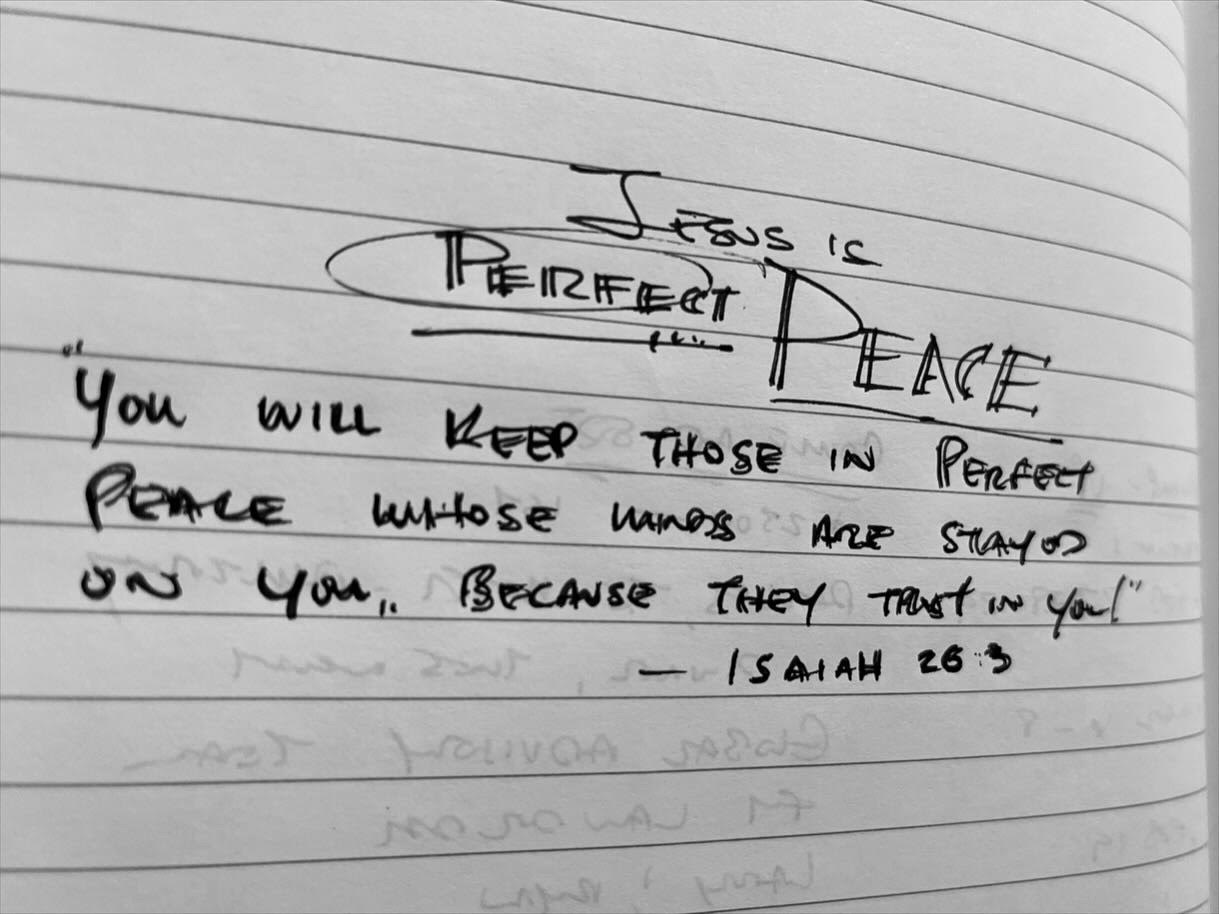 Jesus is
Perfect Peace
"You will keep those in perfect
peace whose minds are stayd
on you, because they trust in you!"
— Isaiah 26:3
Global Advisory Team